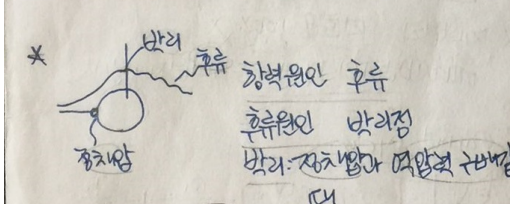 * 박리
후류
정체압
항력원인 후류
후류원인 박리점
박리: 정체압과 역압력 구배일
때